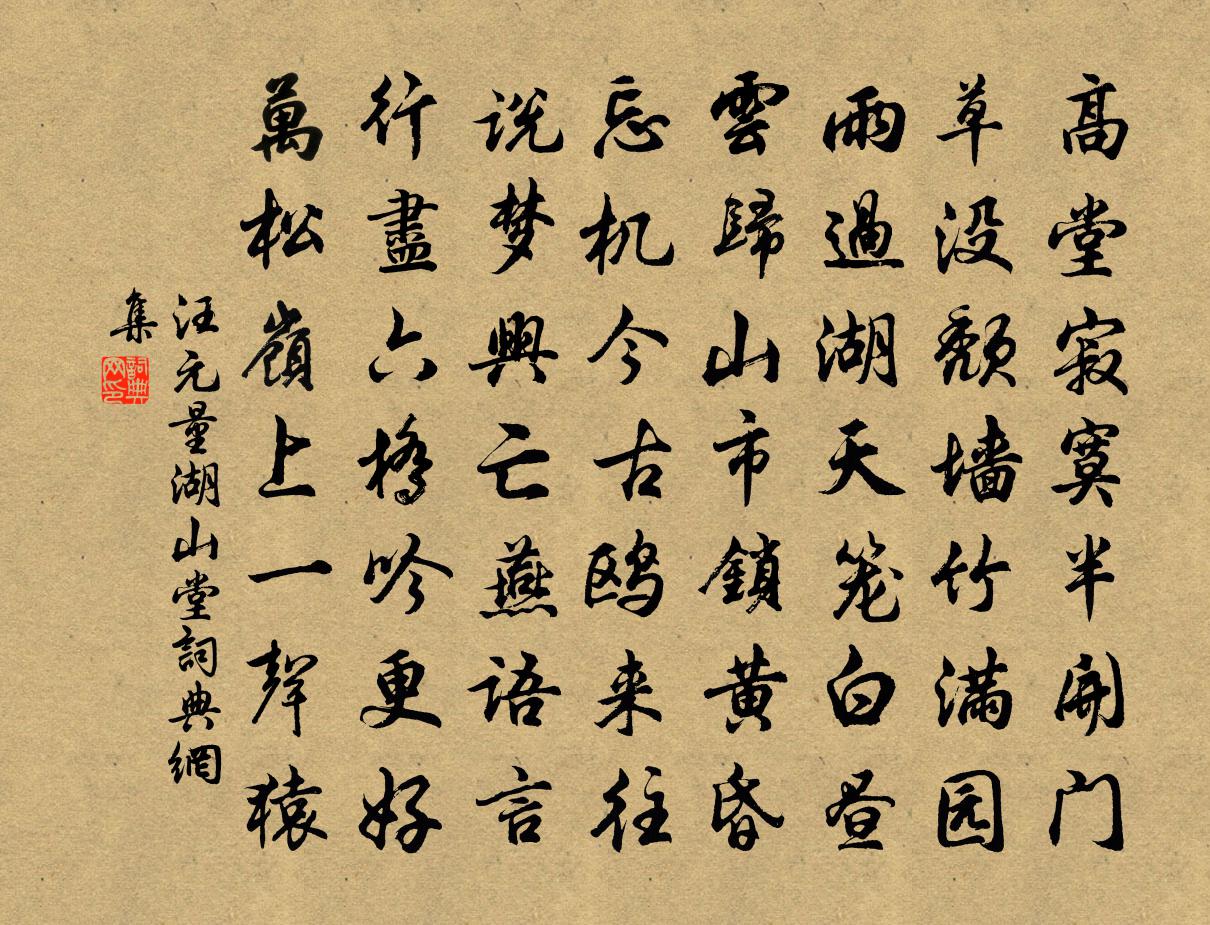 高堂寂寞半開门
草没頽墙竹满园
雨過湖天笼白昼
雲歸山市鎖黄昏
忘机今古鸥来往
说梦興亡燕語言
行盡六橋吟更好
萬松嶺上一聲猿
汪元量湖山堂詞典網
集
詞典网印